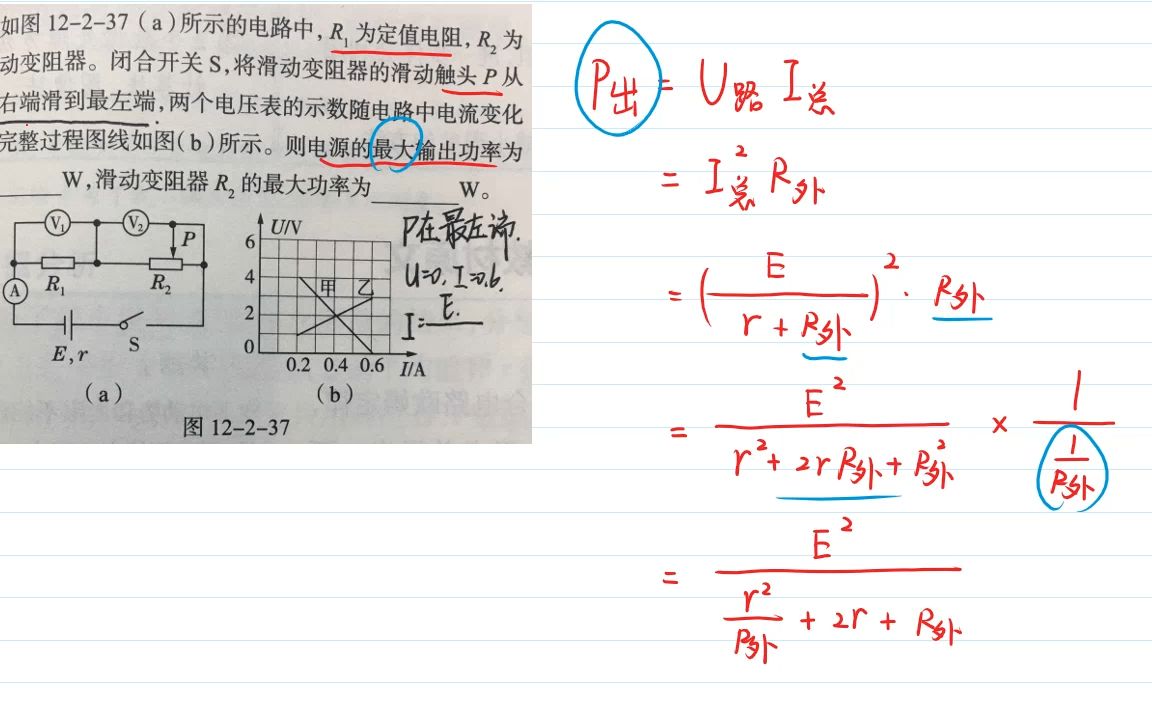 如图 12-2-37（a）所示的电路中, R₁ 为定值电阻, R₂ 为
动变阻器。闭合开关 S,将滑动变阻器的滑动触头 P 从
右端滑到最左端,两个电压表的示数随电路中电流变化
完整过程图线如图(b)所示。则电源的最大输出功率为
______W,滑动变阻器 R₂ 的最大功率为______W。
V₁ V₂
P
R₁ R₂
A
E, r S
（a）
U/V
6
4
2
0
甲 乙
0.2 0.4 0.6 I/A
（b）
图 12-2-37
P在最左端.
U=0, I=0.6.
I=E.
P出 = U路 I总
= I总² R外
= (E/(r + R外))² · R外
= E²/(r² + 2rR外 + R外²) × 1/(1/R外)
= E²/(r²/R外 + 2r + R外)